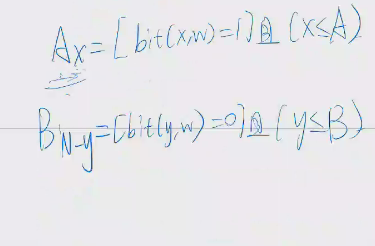 Ax=[bit(x,w)=1]且(x≤A)
B'N-y=[bit(y,w)=0]且(y≤B)